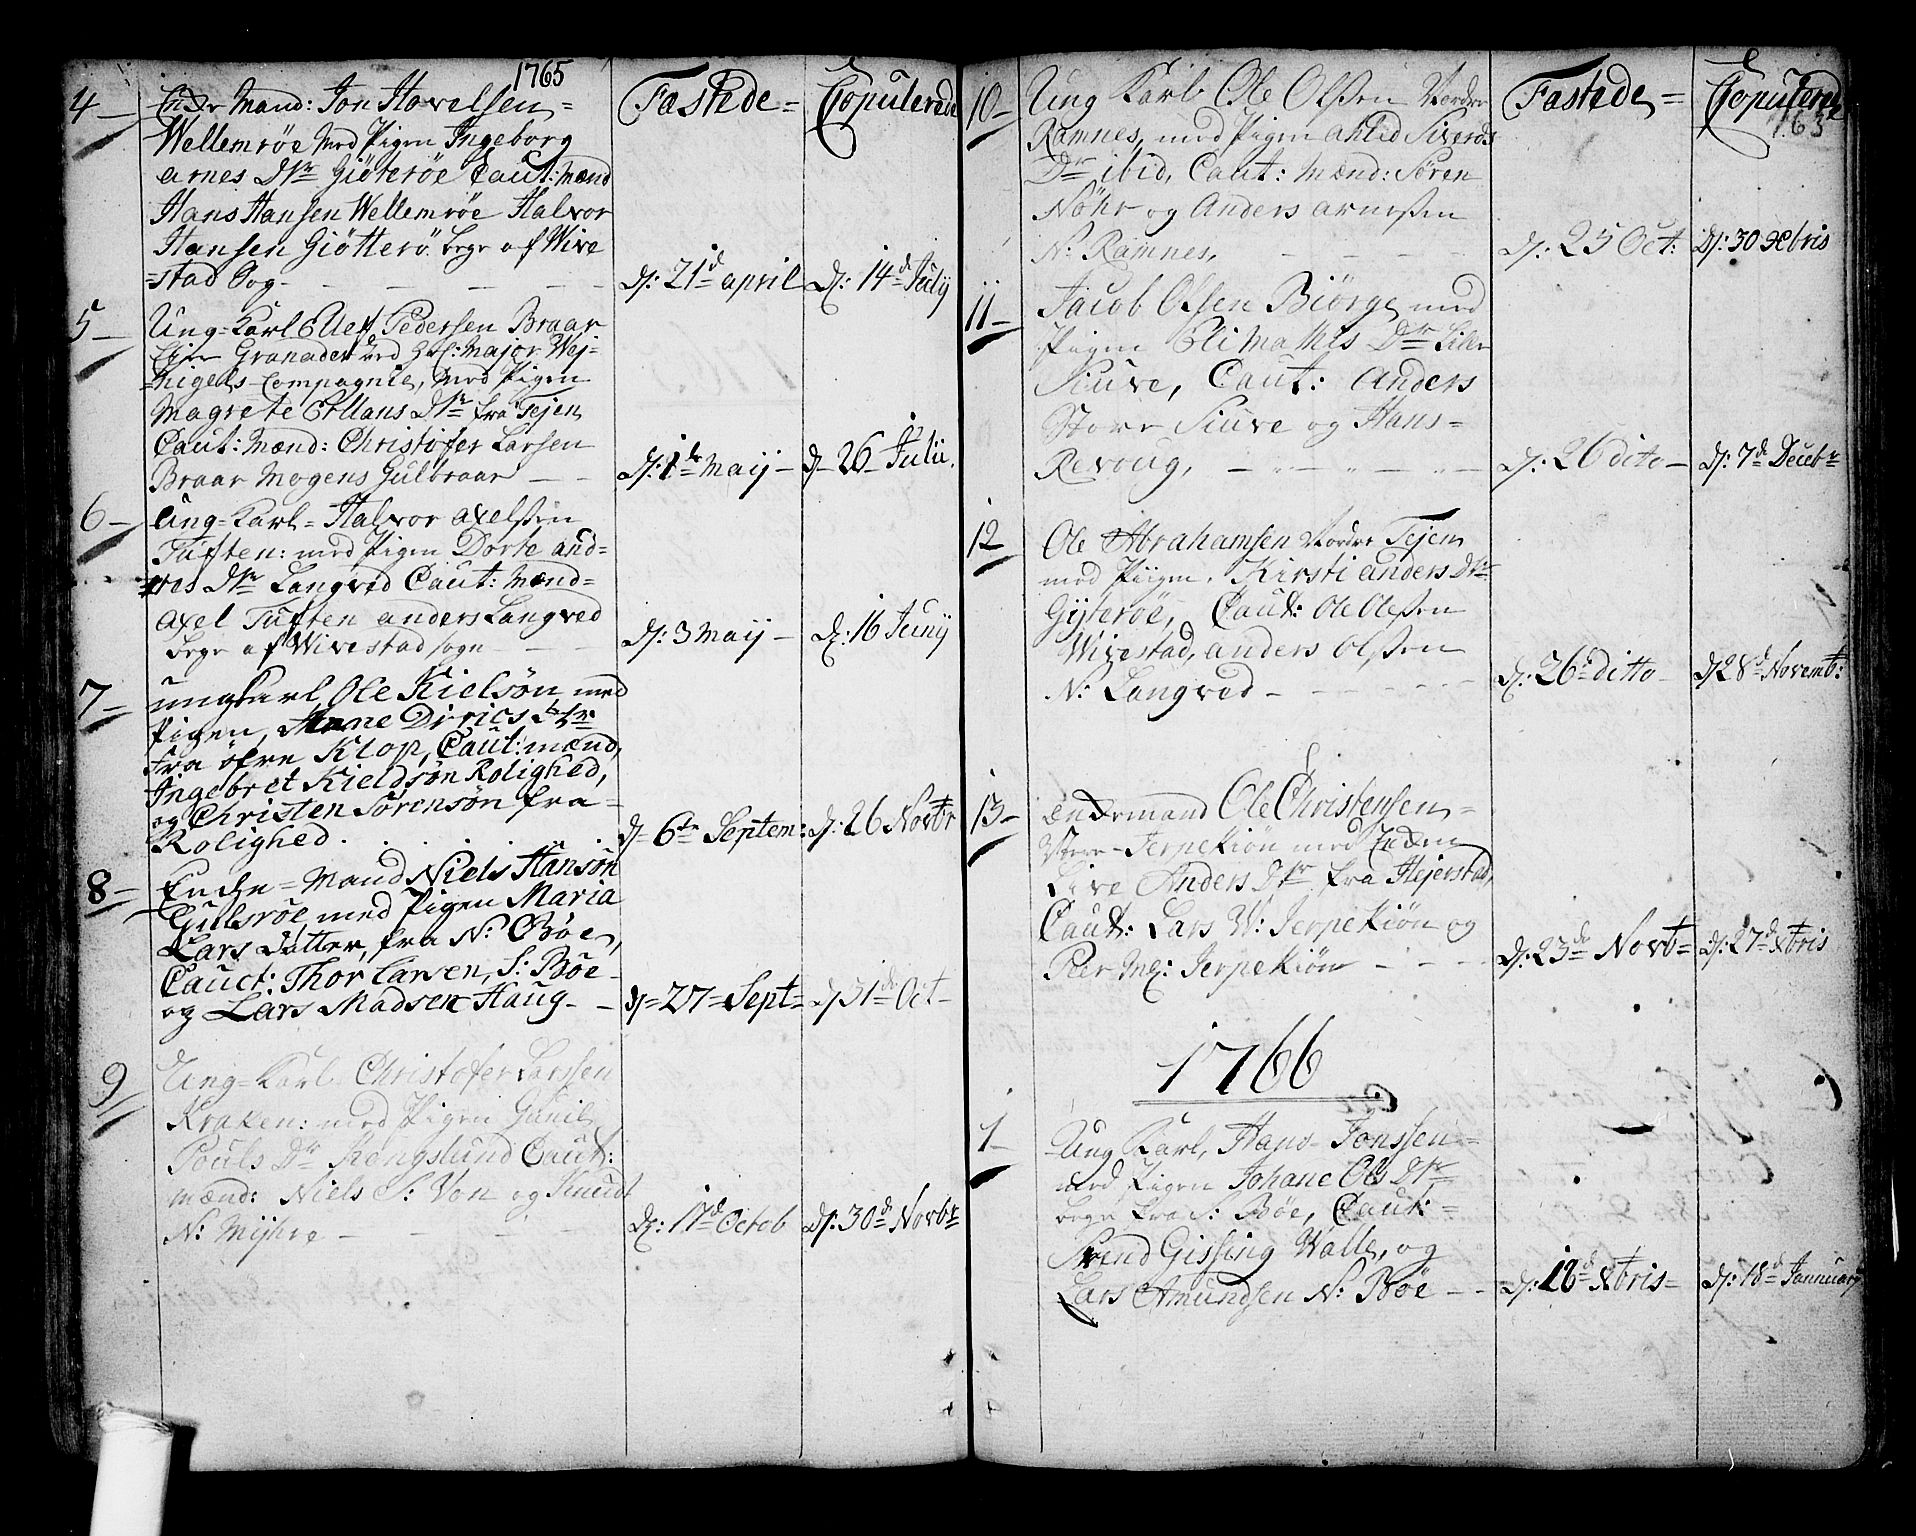 1765
Fæstede = Copulerede
4 - Enke Mand: Jon Hovelsen =
Wellemrøe Med Pigen Ingeborg
arnes Dtr Giøterøe Caut: Mænd
Hans Hansen Wellemrøe Halvor
Hansen Giøtterö. bege af Wive
=stad Sog - - - - - d: 21d april d: 14de Julij
5 - Ung=Karl Ellef Pedersen Braar
Granader ved Major Wej-
Compagnie, Med Pigen
Magrete Ermans Dtr fra Tejen
Caut: Mænd: Christofer Larsen
Braar Mogens Gulbraar - - d: 1de Maij - d - 26 - Julii.
6 - Ung=Karl = Halvor axelssen
Tuften: med Pigen Dorte and=
=res Dtr Langved Caut: Mænd=
axel Tuften anders Langved
bege af Wivestad sogn - - - d: 3 Maij - d: 16 Junij
7 - ungkarl Ole Kielsön med
Pigen, Anne Dirics Dtr:
fra öfre Klop, Caut: mænd,
Ingebret Kieldsön Rolighed,
og Christen Sörensön fra -
Rolighed. . . . . . d 6te Septem: d: 26 Novbr
8 - Enche = Mand Niels Hansön
Gulsröe med Pigen Maria
Lars Datter, fra N: Böe,
Cauct: Thor Larsen, S: Böe -
og Lars Madsen Haug - - d = 27 = Sept = d 31de Oct -
9 Ung=Karl Christofer Larssen
Kraken: med Pigen Gunil
Pouls Dr Kongslund Caut:
mænd: Niels S: Von og Knudt
N: Mijhre - - - - d: 17d Octob d: 30de Novbr
Fæstede = Copulerede
163
10 - Ung Karl Ole Olssen Nordre
Ramnes, med Pigen ahlid Siverds
Dr ibid, Caut: Mænd: Sören
Nöhr og Anders arnessen
N: Ramnes, - - - - d: 25 Oct: d: 30 Xbris
11 - Jacob Olsen Biörge med
Pigen Eli Mathis Dr Lille
Siuve, Caut: Anders
Store Siuve og Hans =
Revoug, - - - - - d: 26 dito - d: 7de Decebr
12 Ole Abrahamsen Nordre Tejen
med Piigen. Kirsti anders Dtr
Gijterøe, Caut: Ole Olessen
Wivestad, anders Olssen
N: Langved - - - - - d: 26d ditto - d 28d Novemb:
13 - Enckemand Ole Christensen =
Jerpekiön med Enken
Live Anders Dtr fra Hejerstad,
Caut: Lars W: Jerpekiön og
Peer Me: Jerpekiön - - - d: 23de Novb = d: 27de Xbris
1766
1 - Ung Karl, Hans Jonssen =
med Pigen Johane Ols Dtr
bege fra S: Böe, Caut: =
Svend Gissing Walle, og
Lars Amundsen N: Böe - - d: 18d Xbris - d: 18d Jannuarij